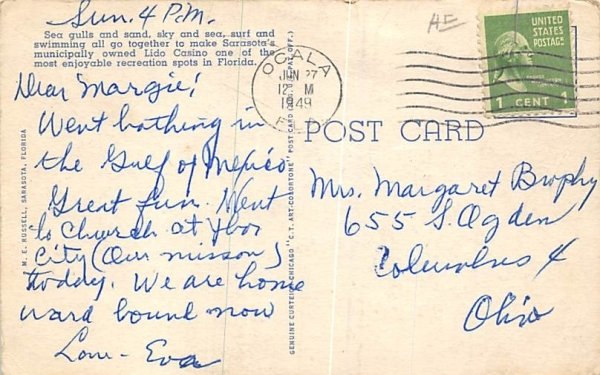 Sun. 4 P.M.
Sea gulls and sand, sky and sea, surf and
swimming all go together to make Sarasota's
municipally owned Lido Casino one of the
most enjoyable recreation spots in Florida.
Dear Margie!
Went bathing in
the Gulf of Mexico
Great fun. Went
to Church at Ybor
City (Our mission)
today. We are home
ward bound now
Love - Eva
M. E. RUSSELL, SARASOTA, FLORIDA
GENUINE CURTEICH-CHICAGO "C.T. ART-COLORTONE" POST CARD (REG. U.S. PAT. OFF.)
OCALA
JUN 27
12 M
1949
FLA.
POST CARD
AE
UNITED
STATES
POSTAGE
1 CENT 1
Mrs. Margaret Brophy
655 S. Ogden
Columbus 4
Ohio